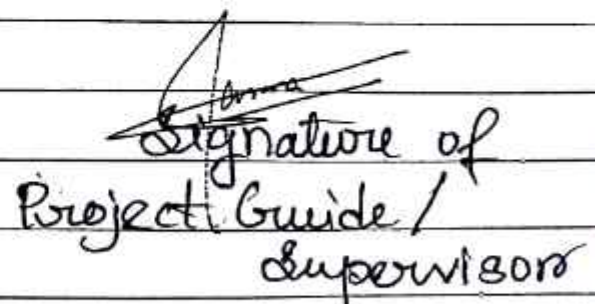 Signature of
Project Guide /
Supervisor